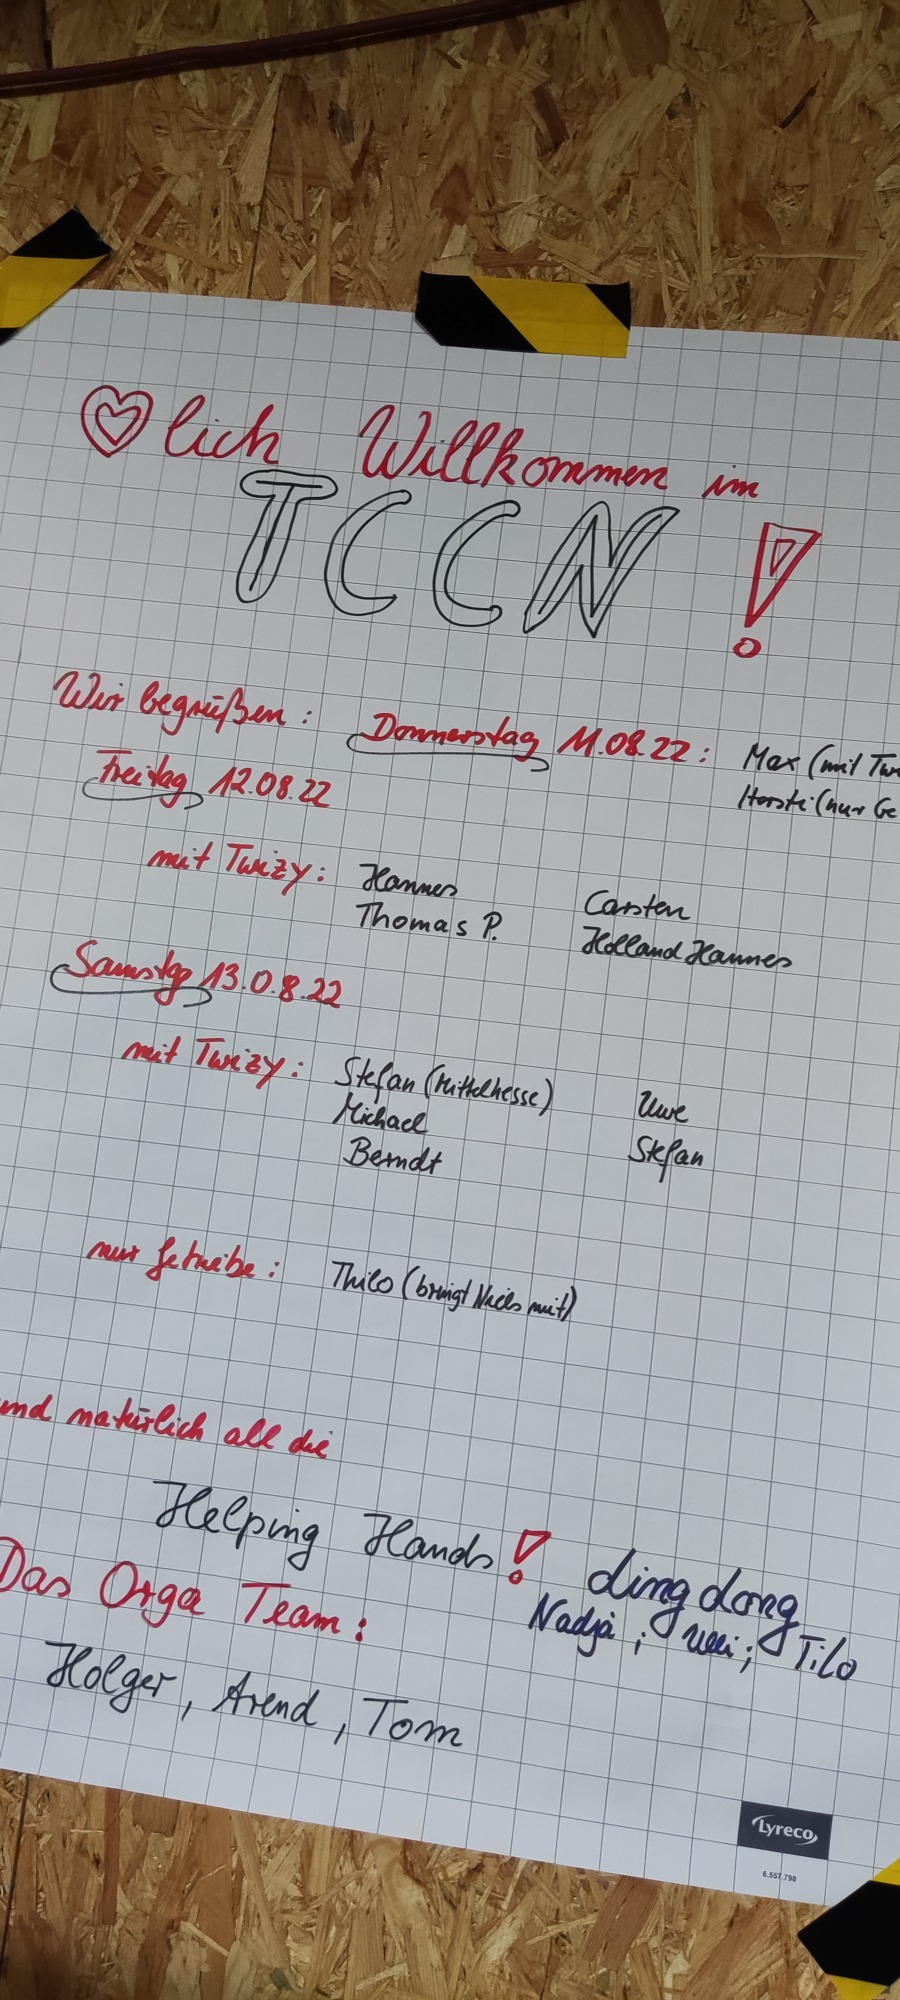 ♡lich Willkommen im
TCCN!
Wir begrüßen: Donnerstag 11.08.22: Max (mit Tw
Horsti (nur Ge
Freitag 12.08.22
mit Twizy: Hannes Carsten
Thomas P. Holland Hannes
Samstag 13.0.8.22
mit Twizy: Stefan (Mittelhesse) Uwe
Michael Stefan
Berndt
nur Getriebe: Thilo (bringt Niels mit)
und natürlich all die
Helping Hands! dingdong
Nadja; Ulli; Tilo
Das Orga Team:
Holger, Arend, Tom
Lyreco
6.557.798